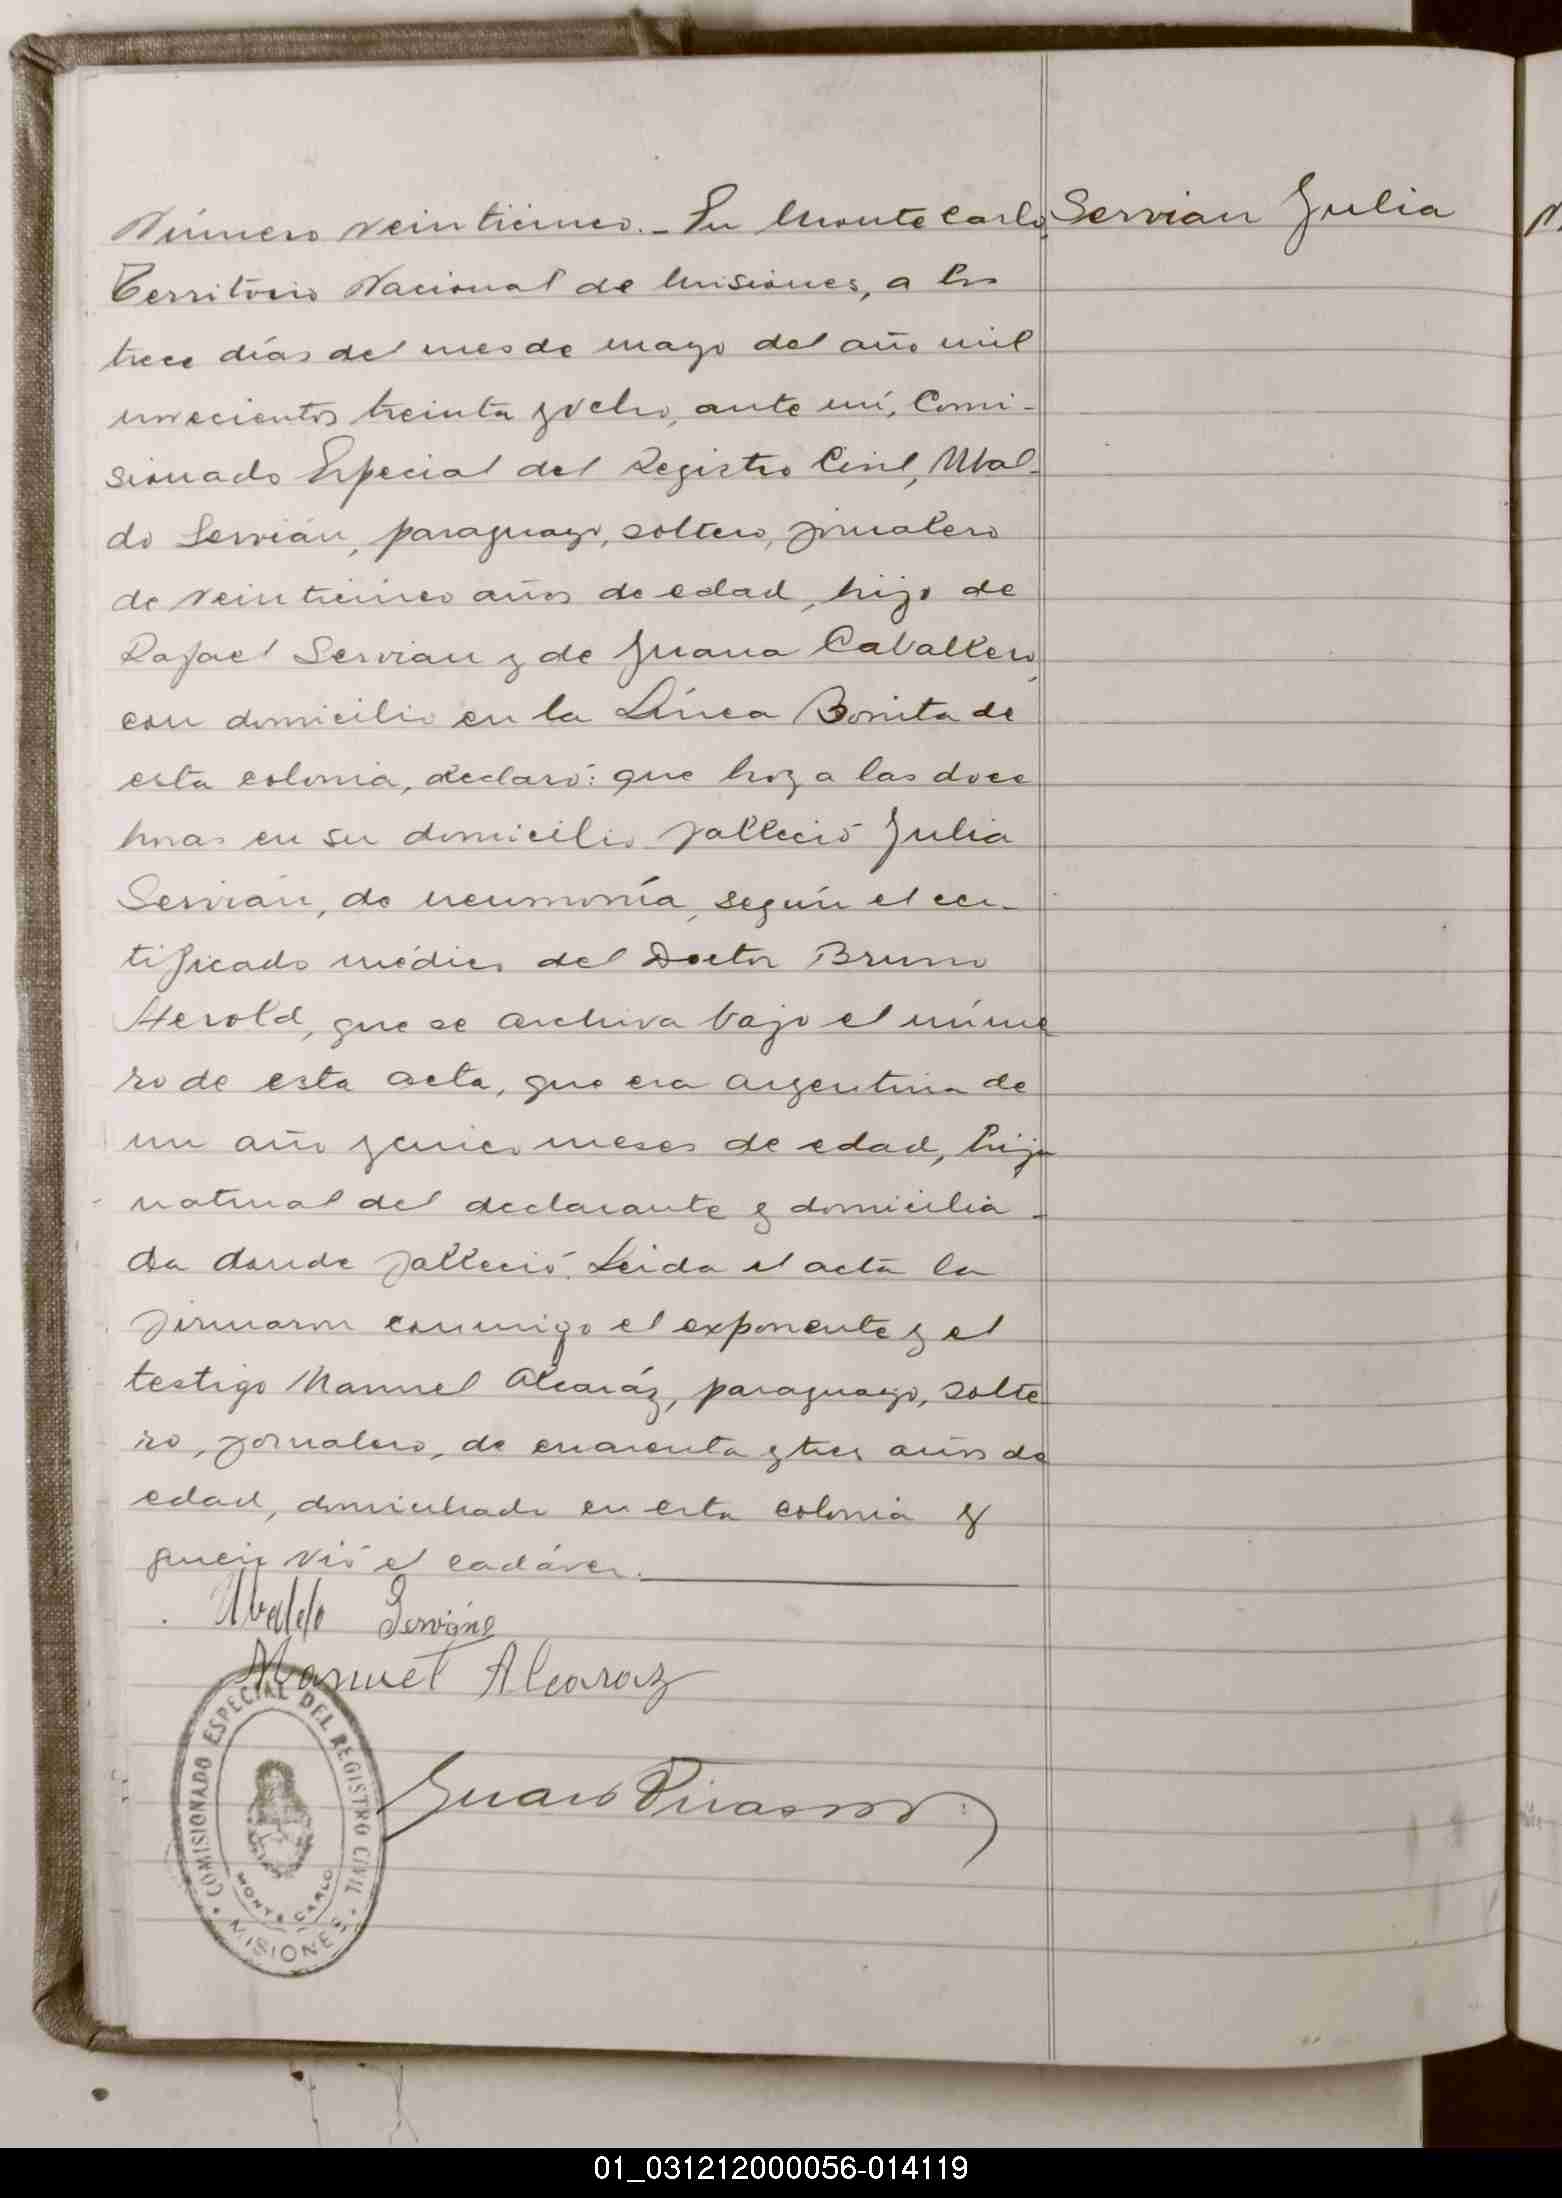 Número veinticinco.- En Monte Carlo, Servian Julia
Territorio Nacional de Misiones, a los
trece días del mes de mayo del año mil
novecientos treinta y ocho, ante mí, Comi-
sionado Especial del Registro Civil, Ubal-
do Servián, paraguayo, soltero, jornalero
de veinticinco años de edad, hijo de
Rafael Servian y de Juana Caballero,
con domicilio en la Línea Bonita de
esta colonia, declaró: que hoy a las doce
horas en su domicilio falleció Julia
Servián, de neumonía, según el cer-
tificado médico del Doctor Bruno
Herold, que se archiva bajo el núme
ro de esta acta, que era argentina de
un año y cinco meses de edad, hija
natural del declarante y domicilia-
da donde falleció. Leida el acta la
firmaron conmigo el exponente y el
testigo Manuel Alcaráz, paraguayo, solte
ro, jornalero, de cuarenta y tres años de
edad, domiciliado en esta colonia y
quien vió el cadáver.
Ubaldo Servián
Manuel Alcaraz
COMISIONADO ESPECIAL DEL REGISTRO CIVIL
MONTE CARLO
MISIONES
01_031212000056-014119